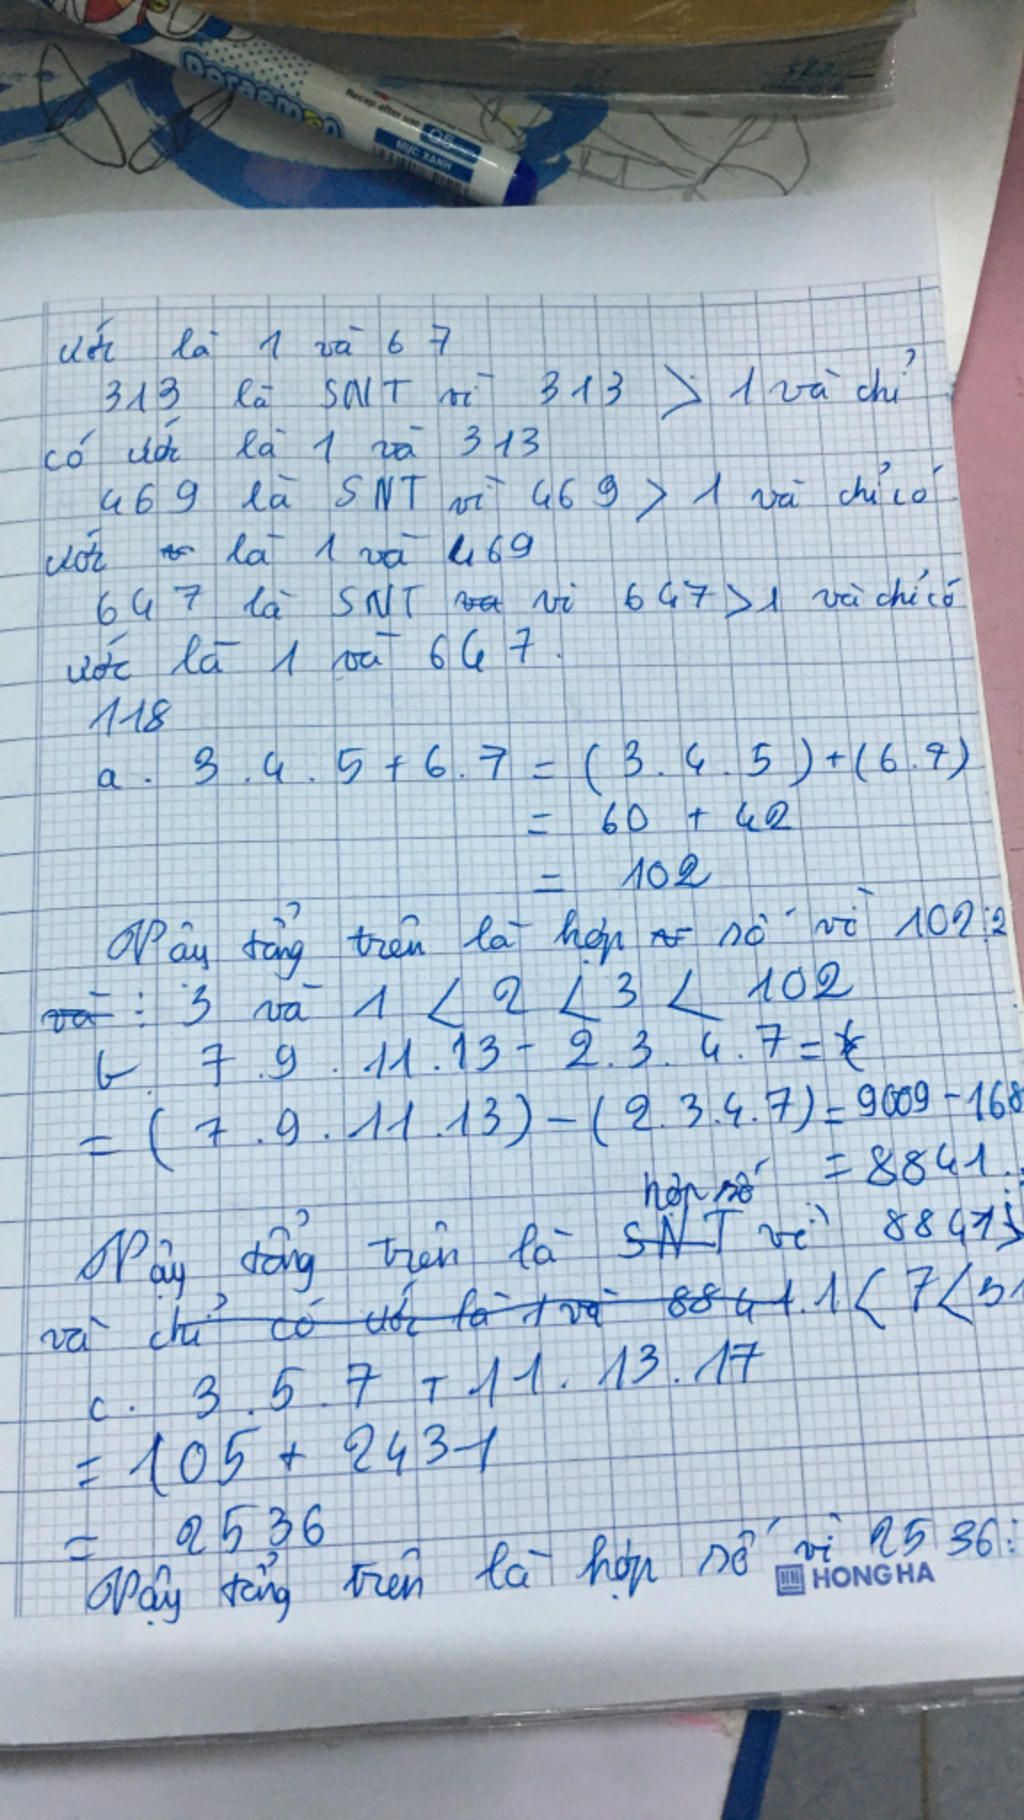 Doraemon
Recap after use
05
MỰC XANH
ước là 1 và 67
313 là SNT vì 313 > 1 và chỉ
có ước là 1 và 313
469 là SNT vì 469 > 1 và chỉ có
ước là 1 và 469
647 là SNT vì 647 > 1 và chỉ có
ước là 1 và 647.
118
a. 3.4.5+6.7 = (3.4.5)+(6.7)
= 60 + 42
= 102
Vậy tổng trên là hợp số vì 102⋮2
và ⋮ 3 và 1 < 2 < 3 < 102
b 7.9.11.13 - 2.3.4.7 =
= (7.9.11.13) - (2.3.4.7) = 9009 - 168
= 8841
hợp số
Vậy tổng trên là SNT vì 8841
và chỉ có ước là 1 và 8841. 1 < 7 <
c. 3.5.7 + 11.13.17
= 105 + 2431
= 2536
Vậy tổng trên là hợp số vì 2536⋮
HONG HA